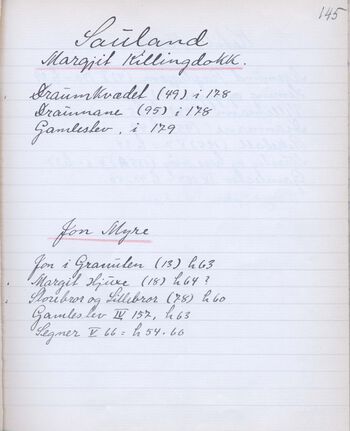 145
Sauland
Margjit Killingdokk.
Draumkvædet (49) i 178
Draumane (95) i 178
Gamleslev, i 179
Jon Myre
Jon i Granuten (13) h 63
Margit Hjuxe (18) h 64?
Storebror og Litlebror (78) h 60
Gamleslev IV 157, h 63
Segner V 66 = h 54-60